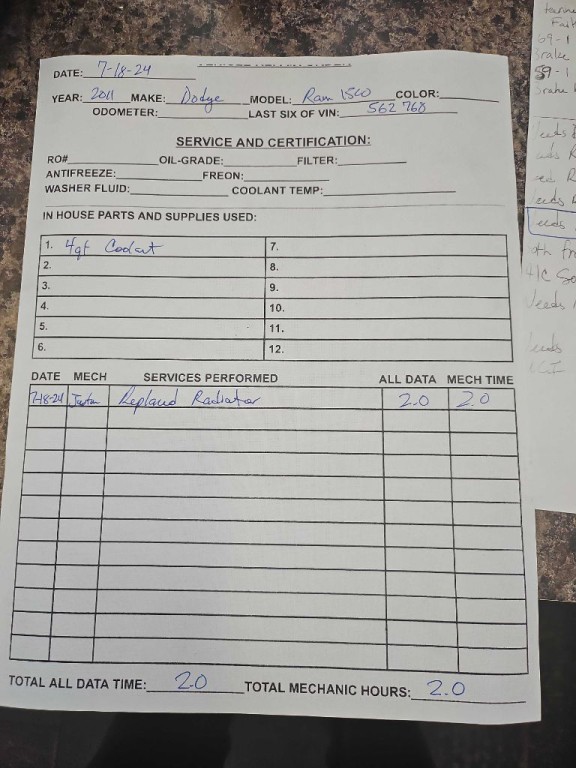 DATE: 7-18-24
YEAR: 2011 MAKE: Dodge MODEL: Ram 1500 COLOR:
ODOMETER: LAST SIX OF VIN: 562 768
SERVICE AND CERTIFICATION:
RO# OIL-GRADE: FILTER:
ANTIFREEZE: FREON:
WASHER FLUID: COOLANT TEMP:
IN HOUSE PARTS AND SUPPLIES USED:
1. 4qt Coolant 7.
2. 8.
3. 9.
4. 10.
5. 11.
6. 12.
DATE MECH SERVICES PERFORMED ALL DATA MECH TIME
7-18-24 Replaced Radiator 2.0 2.0
TOTAL ALL DATA TIME: 2.0 TOTAL MECHANIC HOURS: 2.0
69-1
59-1